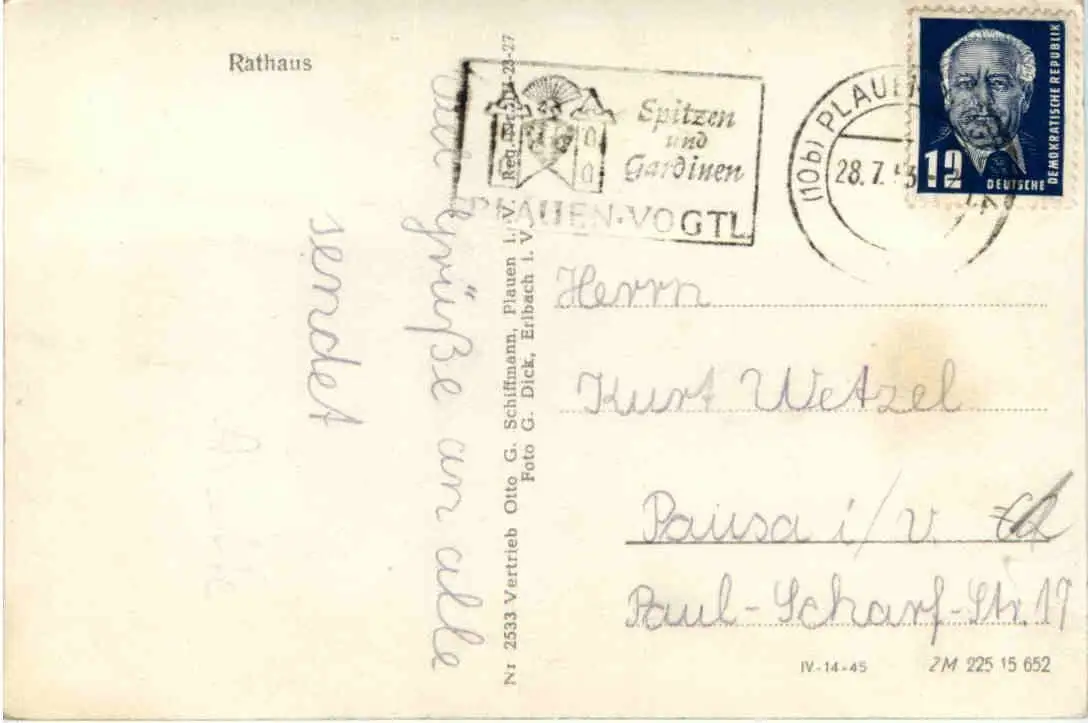 Rathaus
Grüße an alle
sendet
Nr 2533 Vertrieb Otto G. Schiffmann, Plauen i. V.
Foto G. Dick, Erlbach i. V.
Spitzen
und
Gardinen
PLAUEN·VOGTL
(10b) PLAUEN
28.7.53
12
DEUTSCHE
DEMOKRATISCHE REPUBLIK
Herrn
Kurt Wetzel
Pausa i/v.
Paul-Scharf-Str. 17
IV-14-45
2M 225 15 652